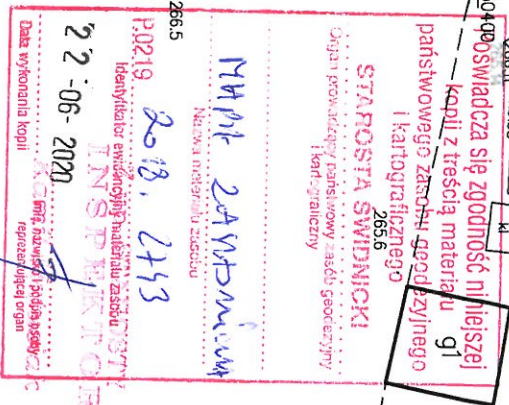 poświadcza się zgodność niniejszej
kopii z treścią materiału
państwowego zasobu geodezyjnego
i kartograficznego
STAROSTA ŚWIDNICKI
Organ prowadzący państwowy zasób geodezyjny
i kartograficzny
Nazwa materiału zasobu
P.0219
2018. 2743
Identyfikator ewidencyjny materiału zasobu
INSPEKTOR
22 -06- 2020
Data wykonania kopii
reprezentującej organ
g1
kl
265.6
266.5